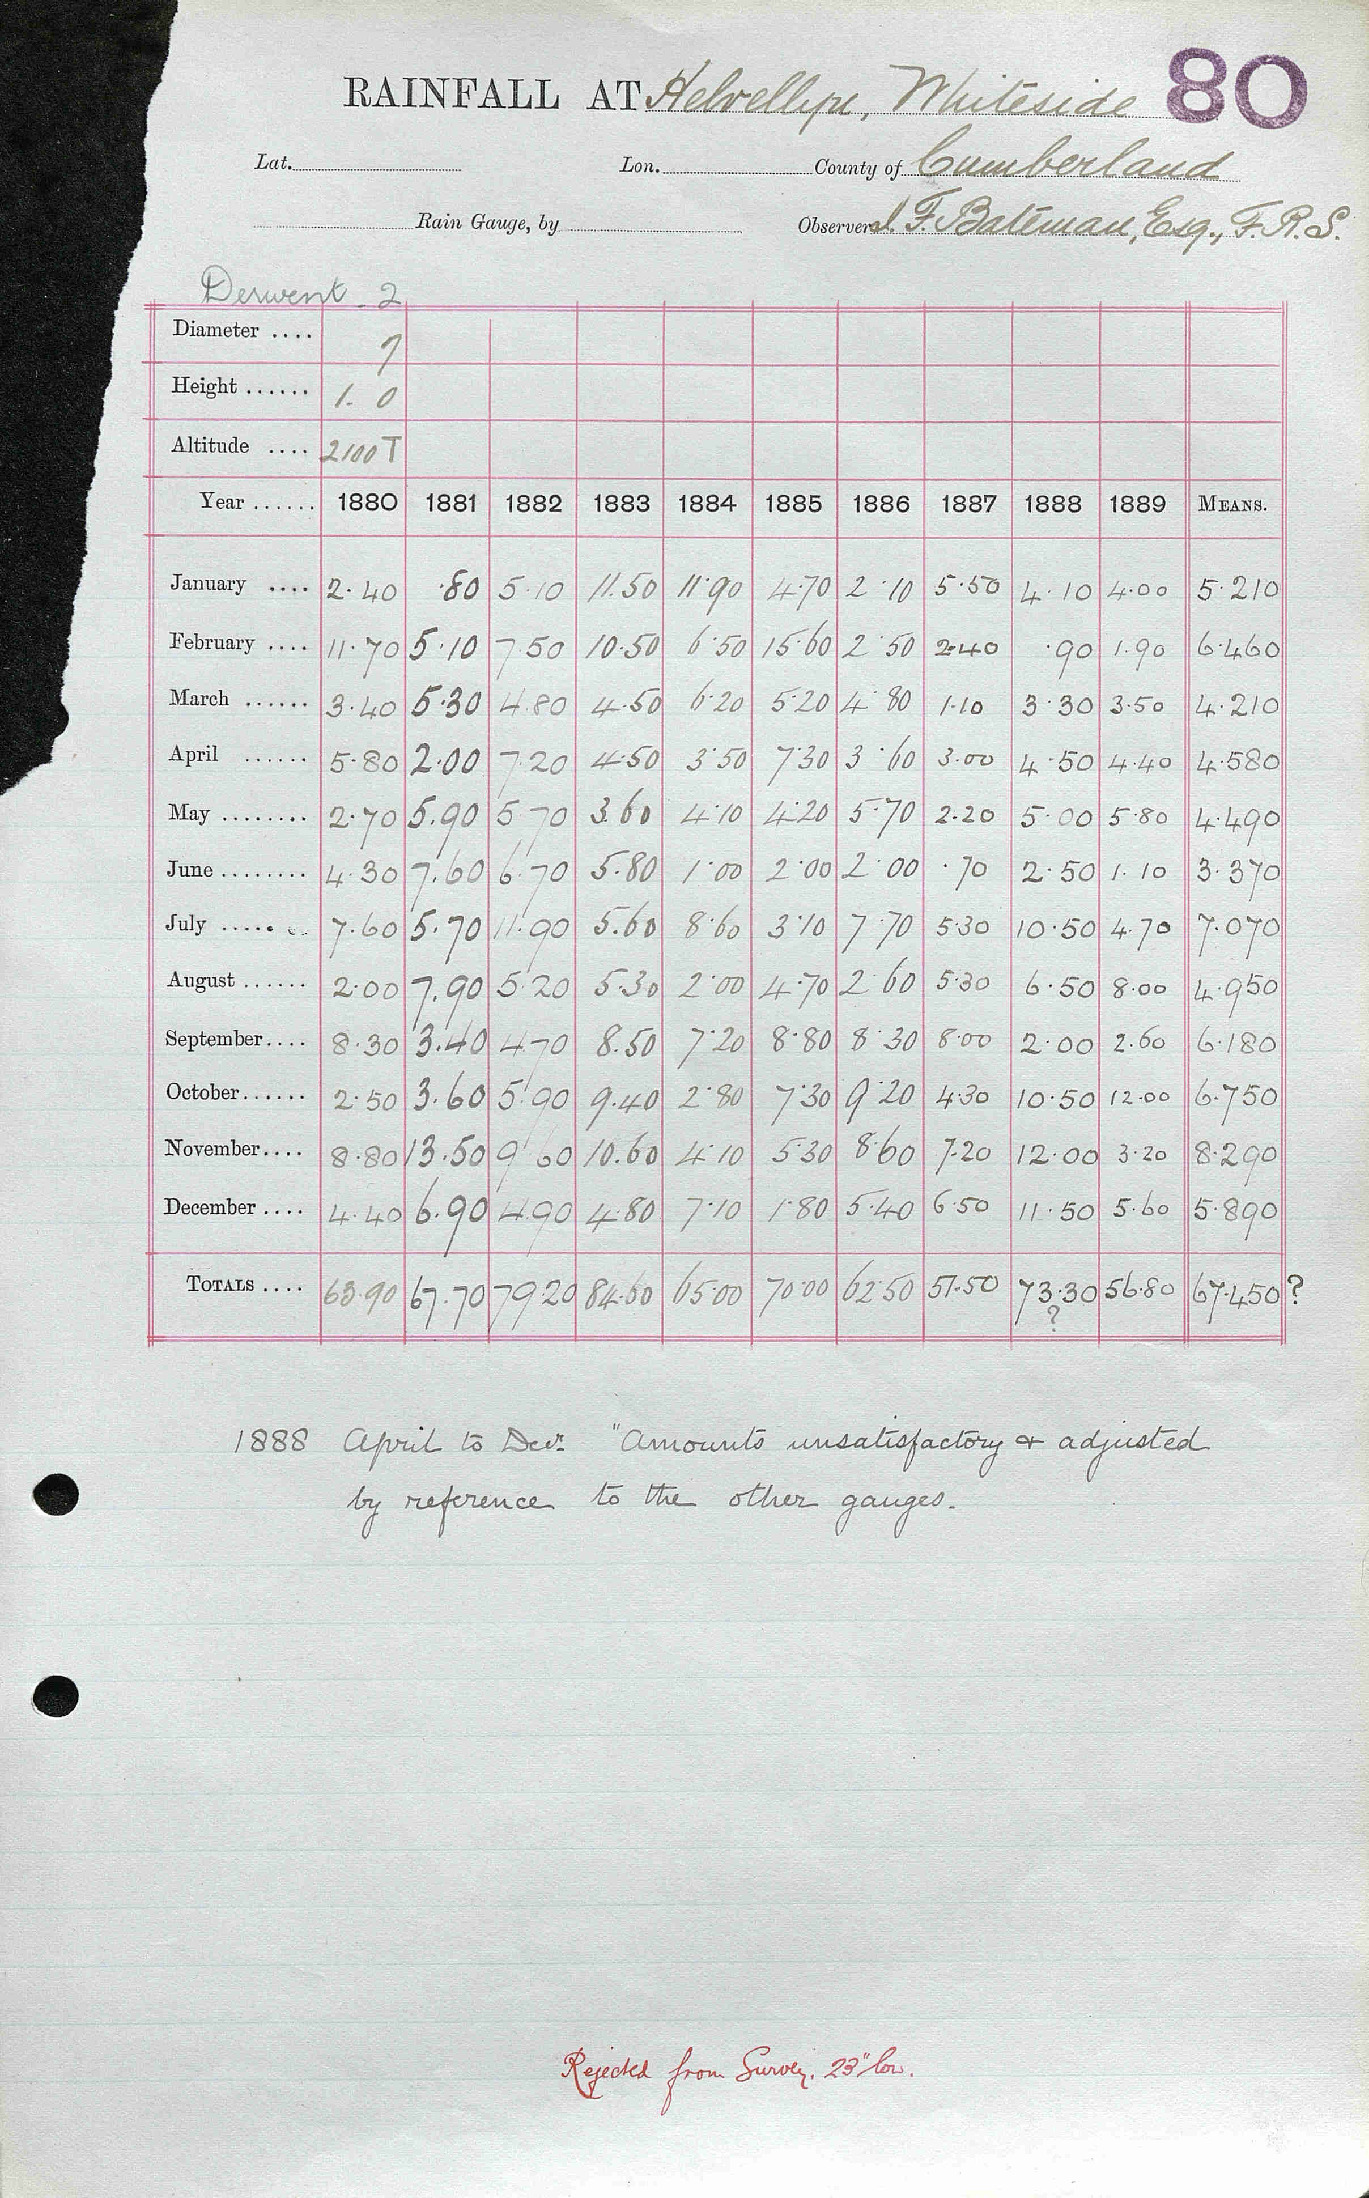 80
RAINFALL AT Helvellyn, Whiteside
Lat. Lon. County of Cumberland
Rain Gauge, by Observer J. F. Bateman, Esq., F.R.S.
Derwent 2
Diameter .... 7
Height ...... 1. 0
Altitude .... 2100 T
Year ...... 1880 1881 1882 1883 1884 1885 1886 1887 1888 1889 MEANS.
January .... 2.40 .80 5.10 11.50 11.90 4.70 2.10 5.50 4.10 4.00 5.210
February .... 11.70 5.10 7.50 10.50 6.50 15.60 2.50 2.40 .90 1.90 6.460
March ...... 3.40 5.30 4.80 4.50 6.20 5.20 4.80 1.10 3.30 3.50 4.210
April ...... 5.80 2.00 7.20 4.50 3.50 7.30 3.60 3.00 4.50 4.40 4.580
May ........ 2.70 5.90 5.70 3.60 4.10 4.20 5.70 2.20 5.00 5.80 4.490
June ........ 4.30 7.60 6.70 5.80 1.00 2.00 2.00 .70 2.50 1.10 3.370
July ........ 7.60 5.70 11.90 5.60 8.60 3.10 7.70 5.30 10.50 4.70 7.070
August ...... 2.00 7.90 5.20 5.30 2.00 4.70 2.60 5.30 6.50 8.00 4.950
September.... 8.30 3.40 4.70 8.50 7.20 8.80 8.30 8.00 2.00 2.60 6.180
October...... 2.50 3.60 5.90 9.40 2.80 7.30 9.20 4.30 10.50 12.00 6.750
November.... 8.80 13.50 9.60 10.60 4.10 5.30 8.60 7.20 12.00 3.20 8.290
December .... 4.40 6.90 4.90 4.80 7.10 1.80 5.40 6.50 11.50 5.60 5.890
TOTALS .... 63.90 67.70 79.20 84.60 65.00 70.00 62.50 51.50 73.30 56.80 67.450 ?
?
1888 April to Decr. "Amounts unsatisfactory & adjusted
by reference to the other gauges.
Rejected from Survey. 23" low.